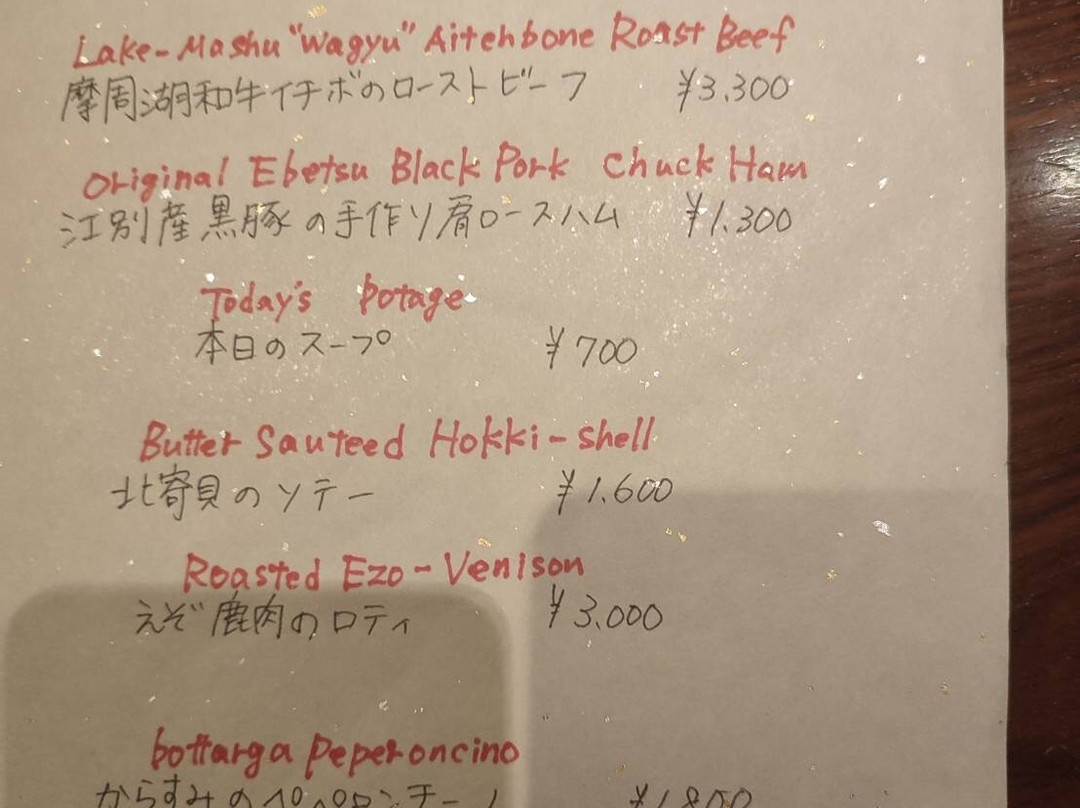 Lake-Mashu "Wagyu" Aitchbone Roast Beef
摩周湖和牛イチボのローストビーフ ¥3.300
Original Ebetsu Black Pork Chuck Ham
江別産黒豚の手作り肩ロースハム ¥1.300
Today's Potage
本日のスープ ¥700
Butter Sauteed Hokki-shell
北寄貝のソテー ¥1.600
Roasted Ezo-Venison
えぞ鹿肉のロティ ¥3.000
bottarga peperoncino
からすみのペペロンチーノ ¥1.800